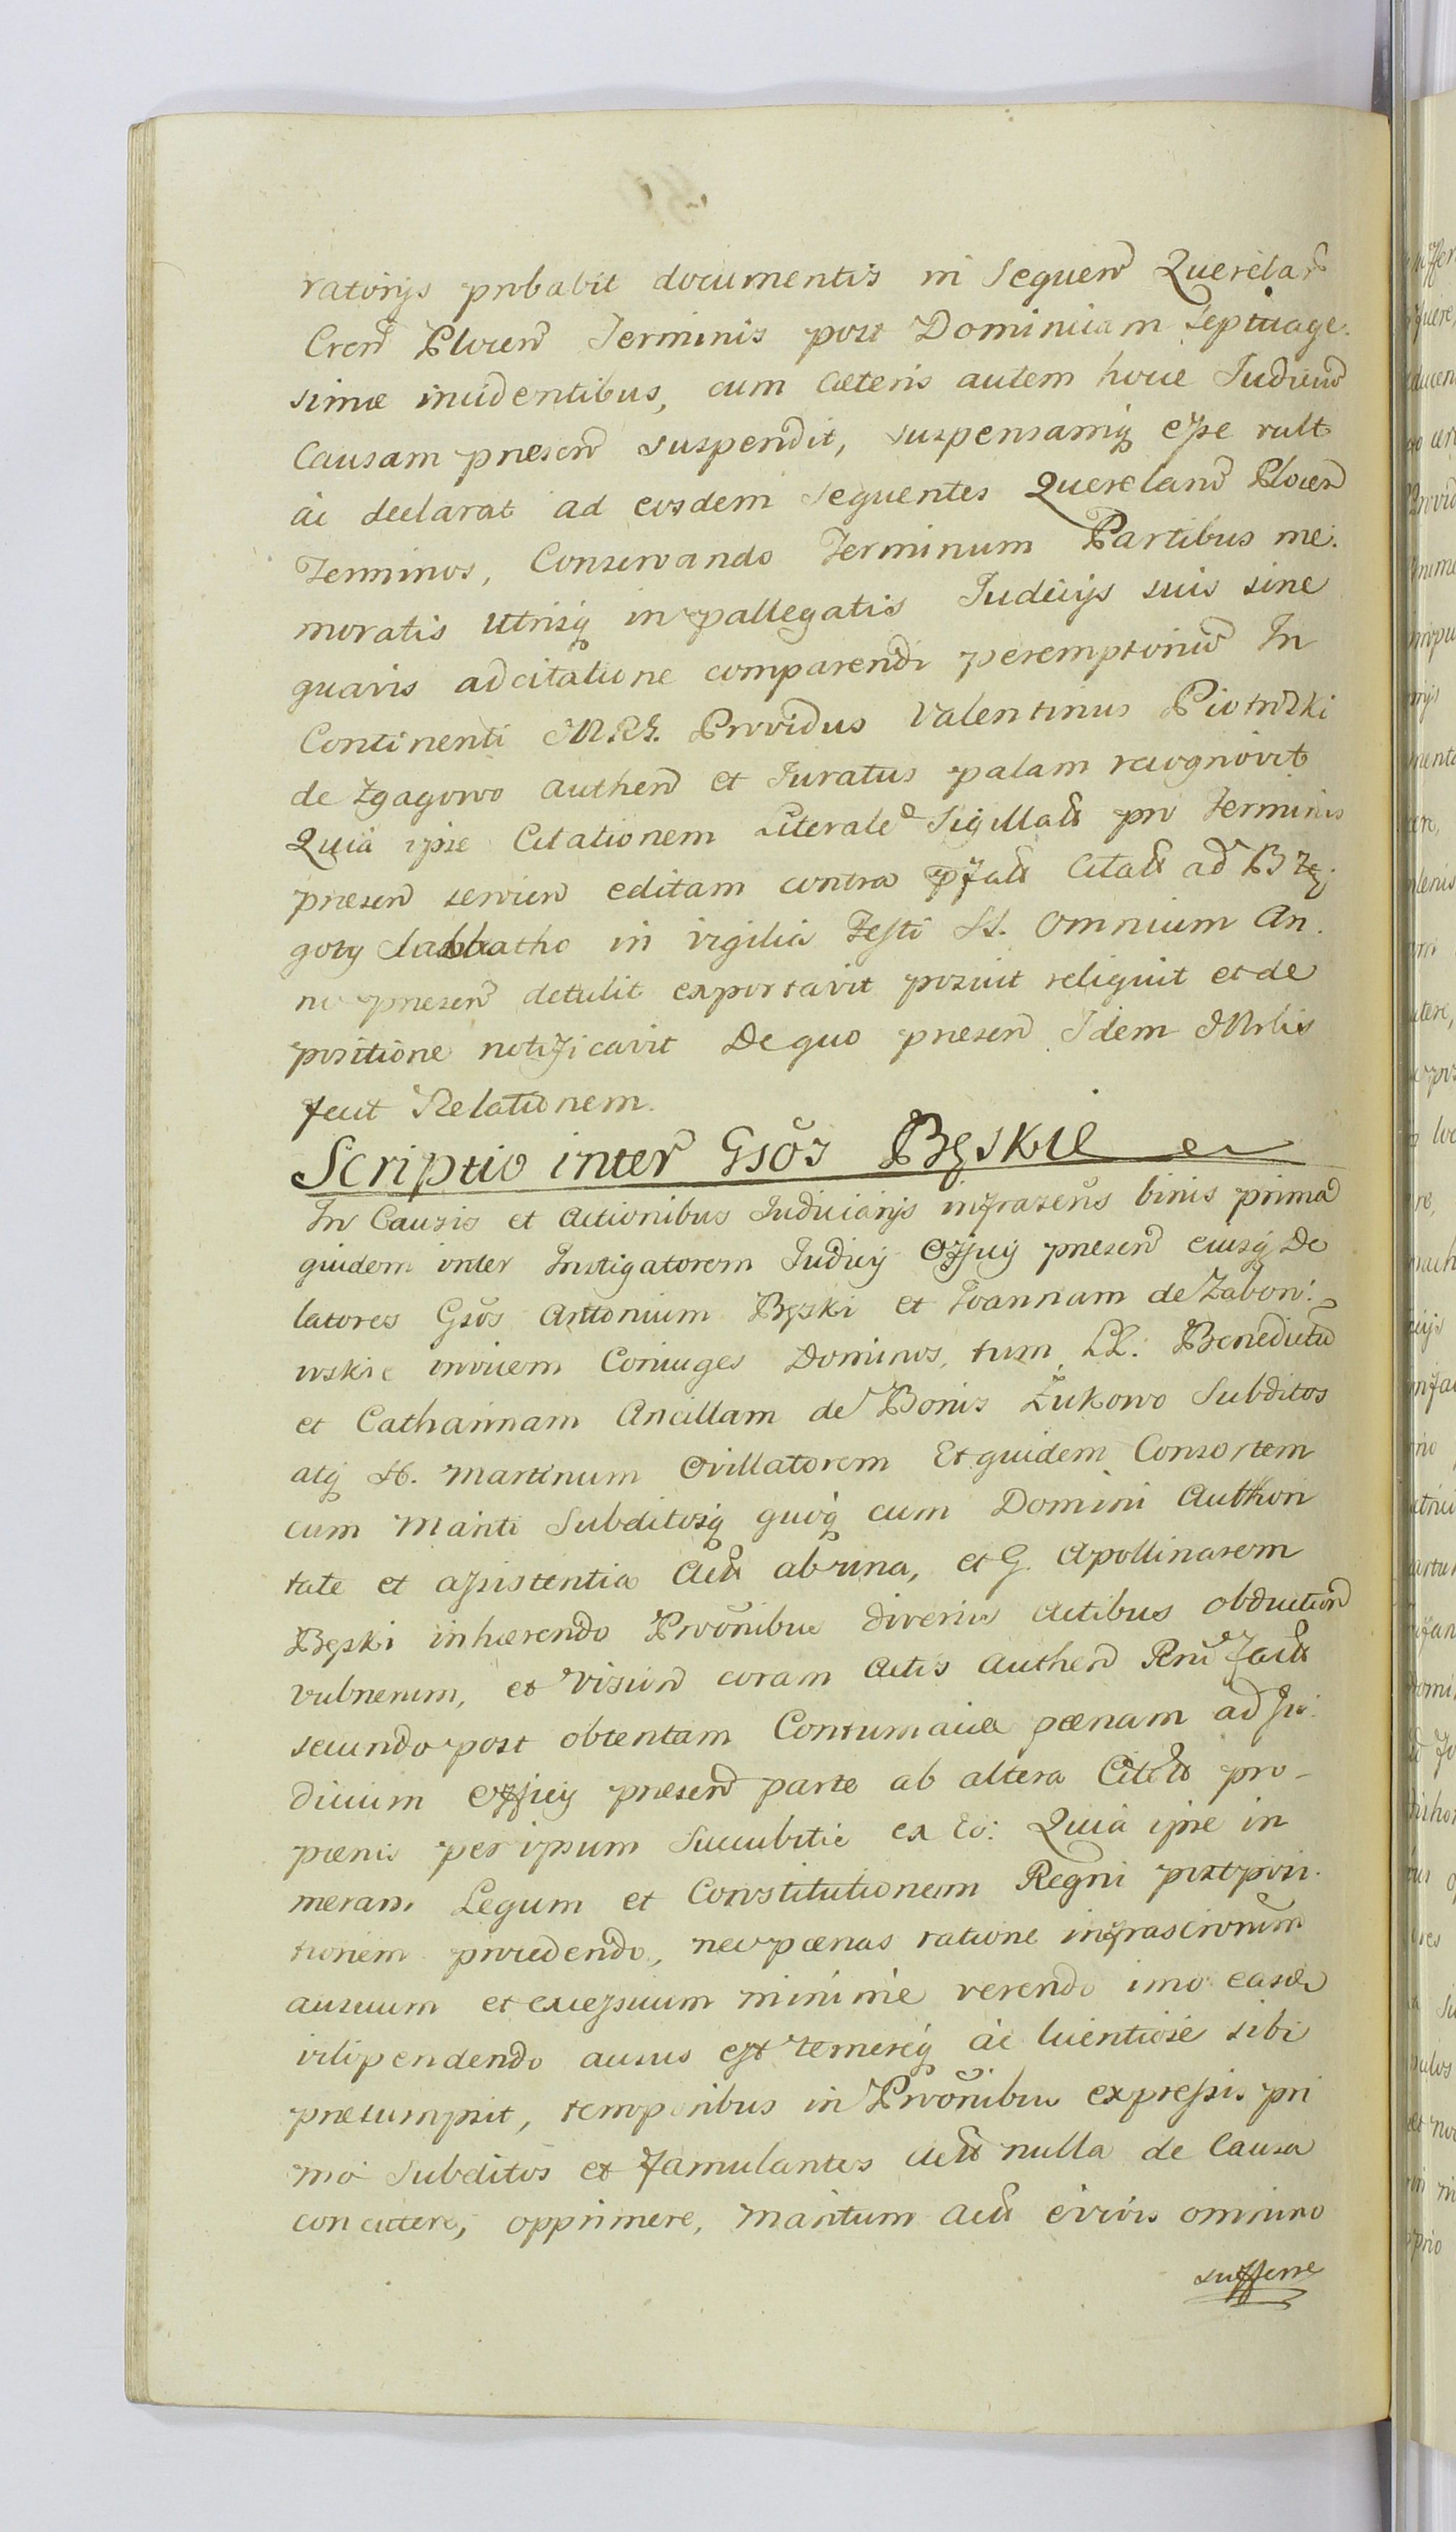 ratorijs probabit documentis in Sequen Querelar
Cren Plocen Terminis post Dominicam Septuage.
simæ incidentibus, cum Cæteris autem hocce Judicium
Causam præsen suspendit, suspensamq esse vult
ac declarat ad eosdem Sequentes Querelarum Plocen
Terminos, Conservando Terminum Partibus me.
moratis utrisq in pallegatis Judicijs suis sine
quavis adcitatione comparendi peremptorium In
Continenti MRG. Providus Valentinus Piotrwski
de Zgagowo authen et Juratus palam recognovit
Quia ipse Citationem Literale Sigillat pro Terminis
præsen servien editam contra pfat Citat ad B Zę.
goty Sabbatho in vigilia Festi SS. Omnium An.
no præsen detulit exportavit posuit reliquit et de
positione notificavit De quo præsen Idem Mrlis
fecit Relationem.
Scriptio inter Gsos Bęskie
In Causis et Actionibus Judiciarijs infrascris binis prima
quidem inter Instigatorem Judicij Officij præsen eiusq De
latores Gsos Antonium Bęski et Joannam de Zabori.
wskie invicem Coniuges Dominos, tum LL. Benedictu
et Catharinam Ancillam de Bonis Żukowo Subditos
atq H. Martinum Ovillatorem Et quidem Consortem
cum Mariti Subditosq quoq cum Domini Authori
tate et assistentia Act ab una, et G. Apollinarem
Bęski inhærendo Pronibus diversis Actibus obduction
vulnerum, et Vision coram Actis Authen Rni fact
secundo post obtentam Contumaciæ pænam ad Ju.
dicium Officij præsen parte ab altera Citat pro-
pænis per ipsum Succubitis ex Eo: Quia ipse in
meram Legum et Constitutionem Regni postposi.
tionem procedendo, nec pænas ratione infrascriorum
ausuum et excessuum minime verendo imo easde
vilipendendo ausus est temereq ac licentiose sibi
præsumpsit, temporibus in Pronibus expressis pri
mo Subditos et Famulantes Act nulla de Causa
concutere, opprimere, Maritum Act è vivis omnino
sufferre